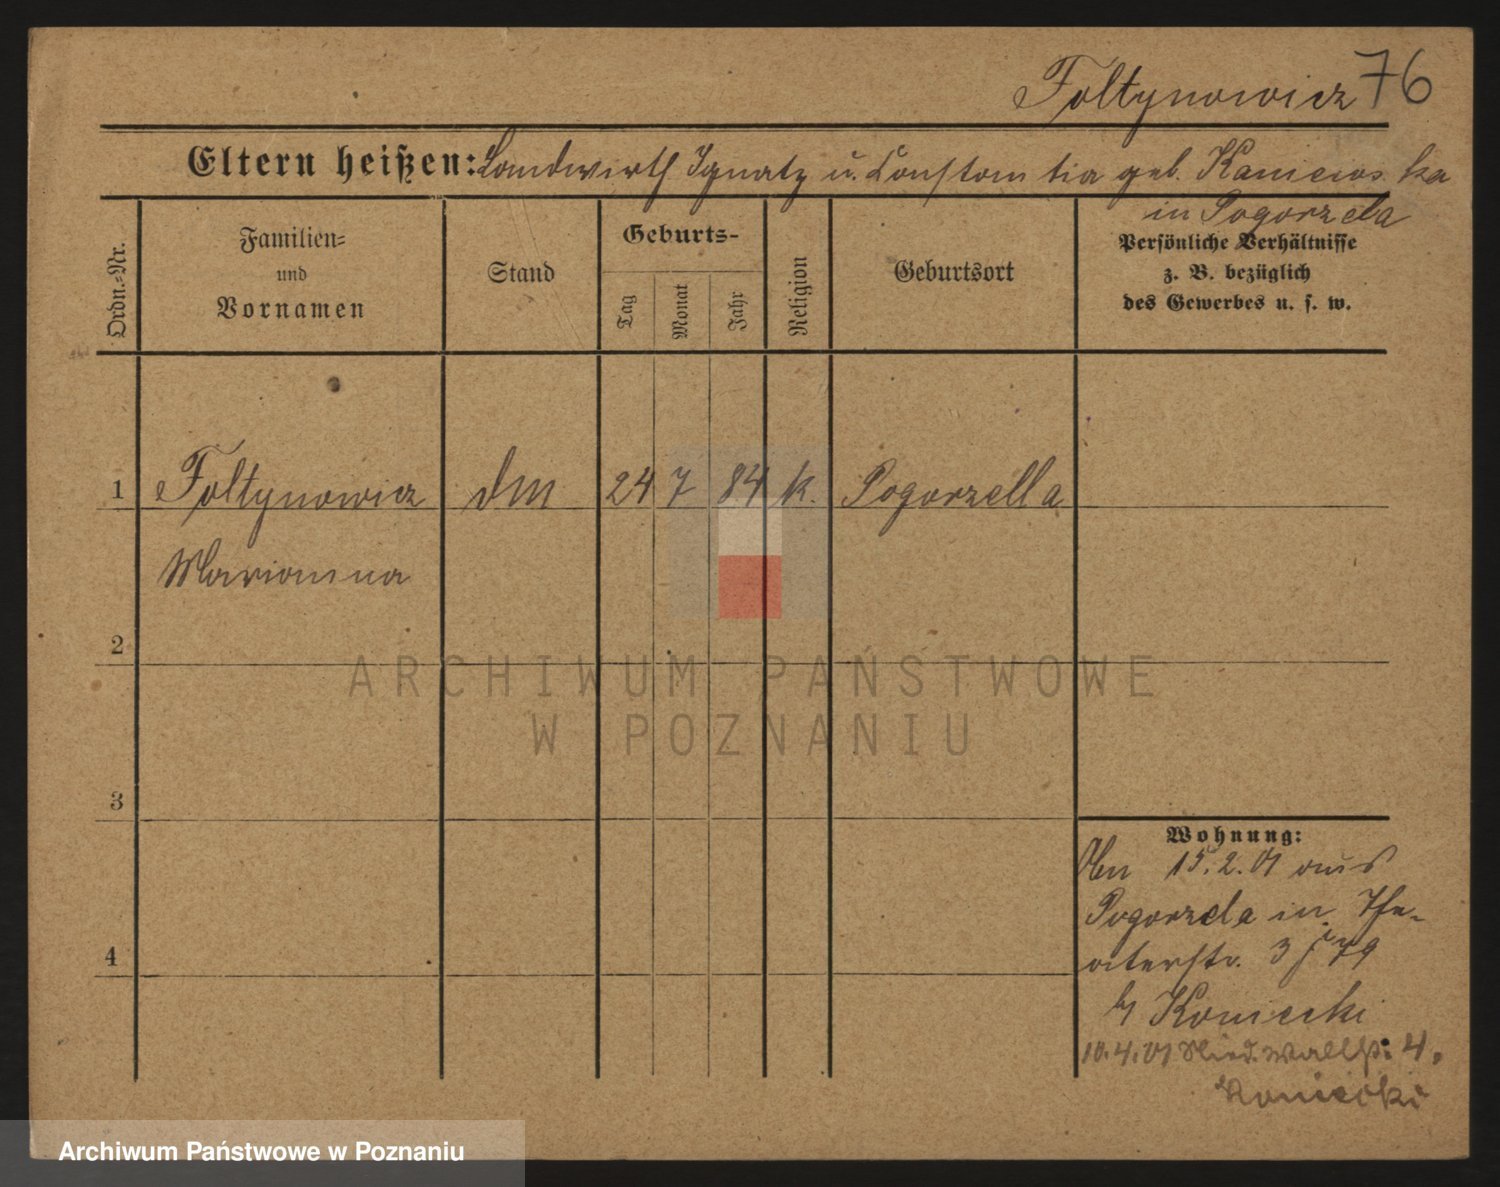 Foltynowicz 76
Eltern heißen: Landwirth Ignatz u. Constantia geb.
in Pogorzela
Ordn.-Nr.
Familien-
und
Vornamen
Stand
Geburts-
Tag
Monat
Jahr
Religion
Geburtsort
Persönliche Verhältnisse
z. B. bezüglich
des Gewerbes u. s. w.
1 Foltynowicz dm 24 7 84 k. Pogorzella
Marianna
2
3
4
Wohnung:
15.2.01 aus
Pogorzela in The-
aterstr. 3
b/ Koniecki
10.4.01 Nied. Wallstr. 4.
Koniecki
ARCHIWUM PAŃSTWOWE
W POZNANIU
Archiwum Państwowe w Poznaniu